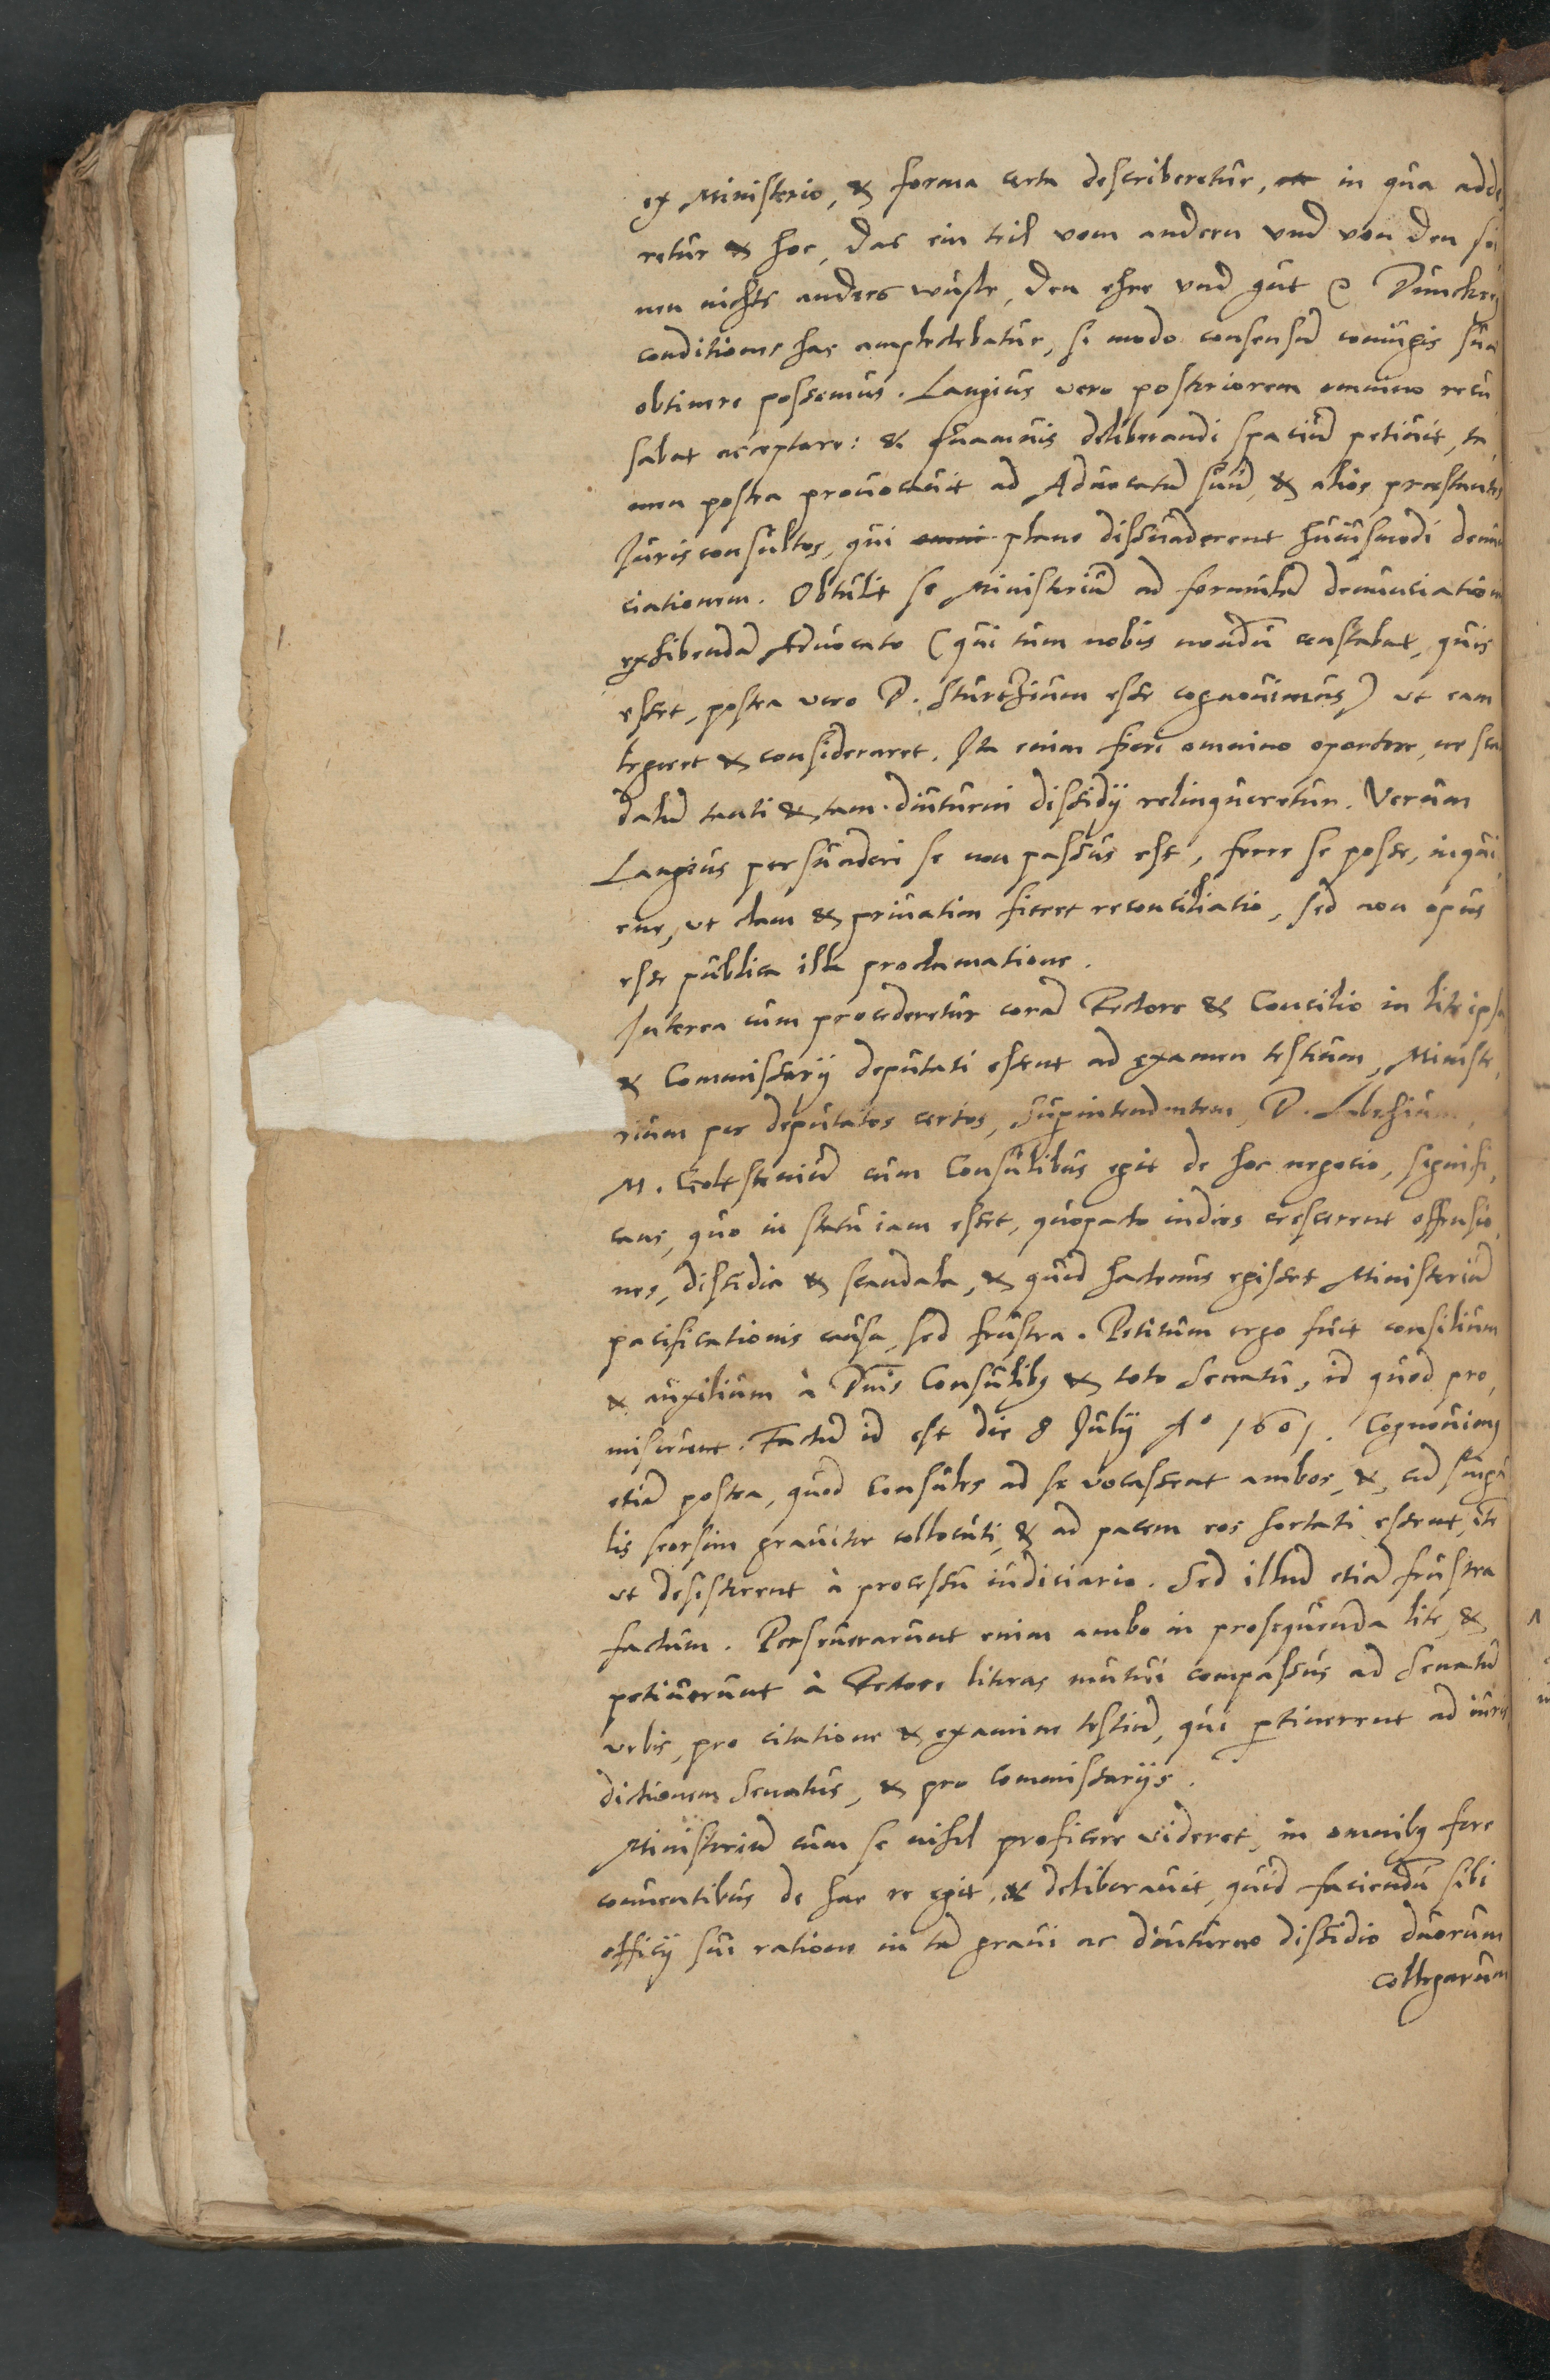 ex Ministerio, & forma certa describeretur, in qua adde
retur & hoc, das ein teil vom andern vnd von den sei
nen nichts anders wuste, den ehre vnd gut Dunckeri
conditiones has amplectebatur, si modo consensū coniugis suæ
obtinere possemus. Langius vero posteriorem omnino recu
sabat acceptare: & quamuis deliberandi spaciū petiuit, ta,
men postea prouocauit ad Aduocatū suū, & alios præstantes
Jurisconsultos, qui plane dissuaderent huiusmodi denun
ciationem. Obtulit se Ministeriū ad formulā denunciationis
exhibendā Aduocato (qui tum nobis nondū constabat, quis
esset, postea vero D. Sturtzium esse cognouimus) vt eam
legeret & consideraret. Ita enim fieri omnino oportere, ne scan
dalū tanti & tam diuturni dissidij relinqueretur. Verum
Langius persuaderi se non passus est, ferre se posse, inqui,
ens, vt clam & priuatim fieret reconciliatio, sed non opus
esse publica illa proclamatione.
Interea cum procederetur corā Rectore & Concilio in lite ipsa
& Commissarij deputati essent ad examen testium, Ministe,
rium per deputatos certos, Superintendentem, D. Lubechium,
M. Goltstenium cum Consulibus egit de hoc negocio, signifi,
cans, quo in statu iam esset, quopacto indies crescerent offensio,
nes, dissidia & scandala, & quid hactenus egisset Ministeriū
pacificationis causa, sed frustra. Petitum ergo fuit consilium
& auxilium à Dnis Consulibꝫ & toto Senatu, id quod pro,
miserunt. Factū id est die 8 Julij Aº 1601. Cognouimꝰ
etiā postea, quod Consules ad se vocassent ambos, & cū singu
lis seorsim grauiter collocuti, & ad pacem eos hortati essent, itē
vt desisterent à processu iudiciario. Sed illud etiā frustra
factum. Perseuerarunt enim ambo in prosequenda lite, &
petiuerunt à Rectore literas mutui compassus ad Senatū
vrbis, pro citatione & examine testiū, qui ꝑtinerent ad iuris
dictionem Senatus, & pro Commissarijs.
Ministeriū cum se nihil proficere videret, in omnibꝫ fere
conuentibus de hac re egit, & deliberauit, quid faciendū sibi
officij sui ratione in tā graui ac diuturno dissidio duorum
collegarum